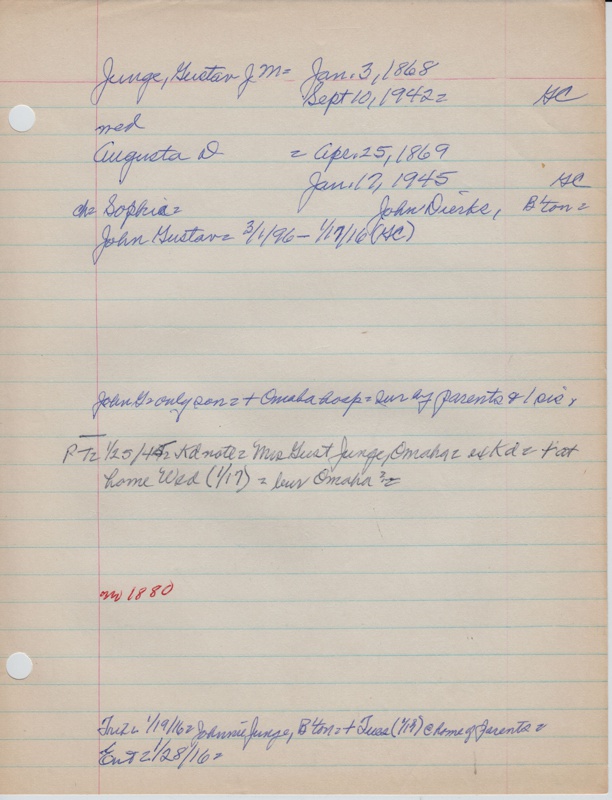 Junge, Gustav J M = Jan. 3, 1868
Sept 10, 1942 = GC
med
Augusta D = Apr. 25, 1869
Jan. 17, 1945 GC
ch = Sophia = John Dierks, B'ton =
John Gustav = 3/1/96 - 1/17/16 (GC)
John G = only son = + Omaha hosp = sur by parents & 1 sis.
PT = 1/25/45 = Kd note = Mrs Gust Junge, Omaha = ex Kd = + at
home Wed (1/17) = bur Omaha? =
no 1880
1/19/16 = Johnnie Junge, B'ton = + Tues (1/18) @ home of parents =
Ent = 1/28/16 =